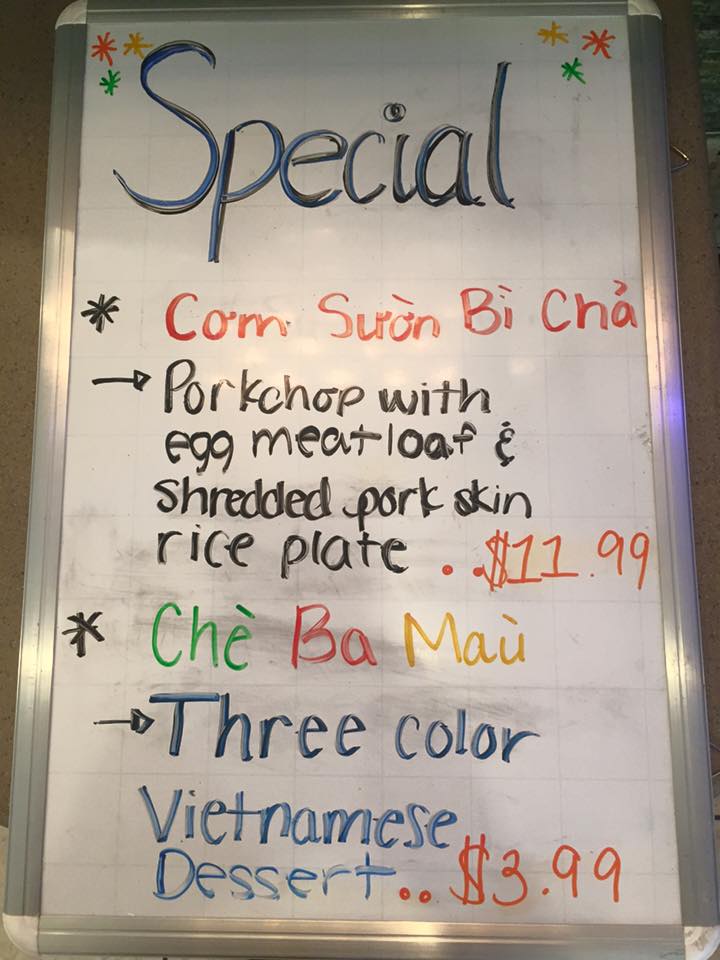 Special
* Cơm Sườn Bì Chả
→ Porkchop with
egg meatloaf &
shredded pork skin
rice plate ..$11.99
* Chè Ba Maù
→ Three color
Vietnamese
Dessert..$3.99